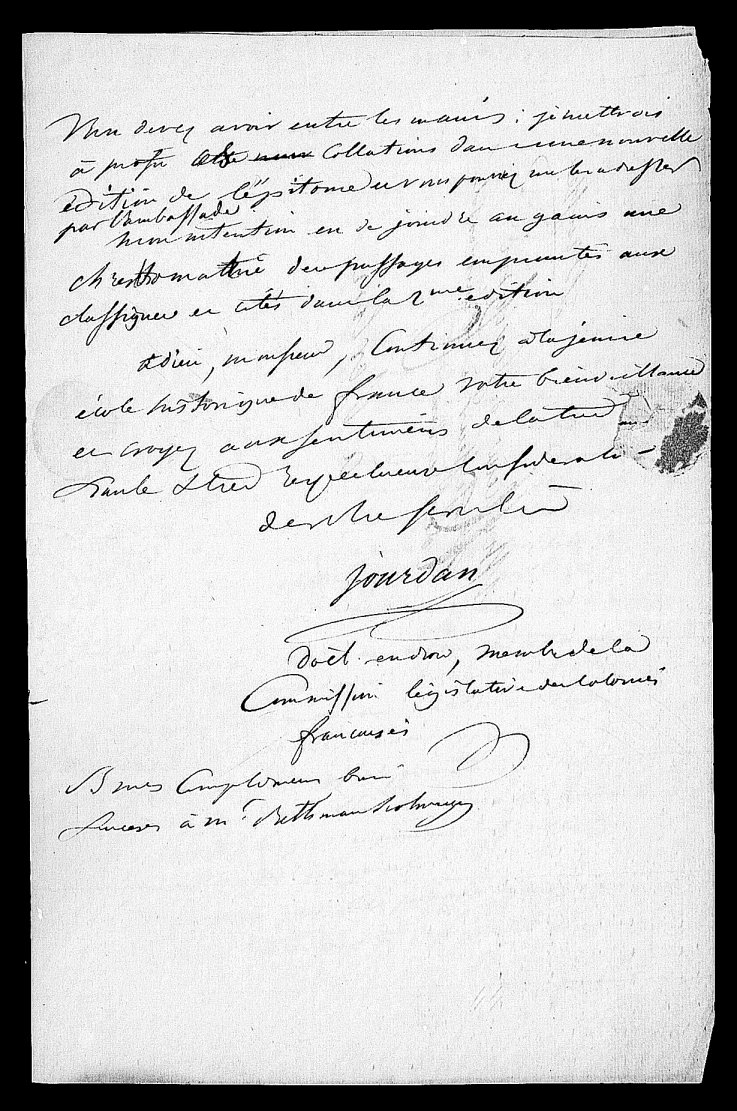 Vous devez avoir entre les mains: je mettrois
à profit ces Collations dans une nouvelle
édition de l'épitome et vous pouvez me les adresser
par l'ambassade.
Mon intention est de joindre au gaius une
chrestomathie des passages empruntés aux
classiques et cités dans la 2me édition
adieu, monsieur, Continuez à la jeune
école historique de france votre bienveillance
et croyez aux sentiments de la
haute et très respectueuse Considération
de votre serviteur
jourdan
doct. en droit, membre de la
Commission législative des Colonies
françaises
mes Compliments bien
sincères à mr. Bethman holweg